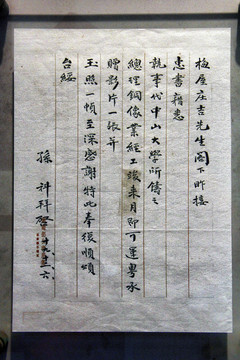 梅屋庄吉先生閣下昨接
惠書藉悉
執事代中山大學所鑄之
總理銅像業經工竣來月即可運粵承
贈影片一張並
玉照一幀至深感謝特此奉復順頌
台綏
孫科 科啓